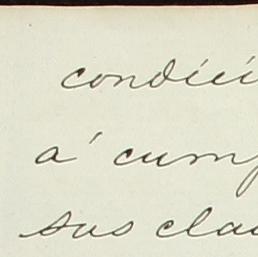 condici
á cump
sus clau